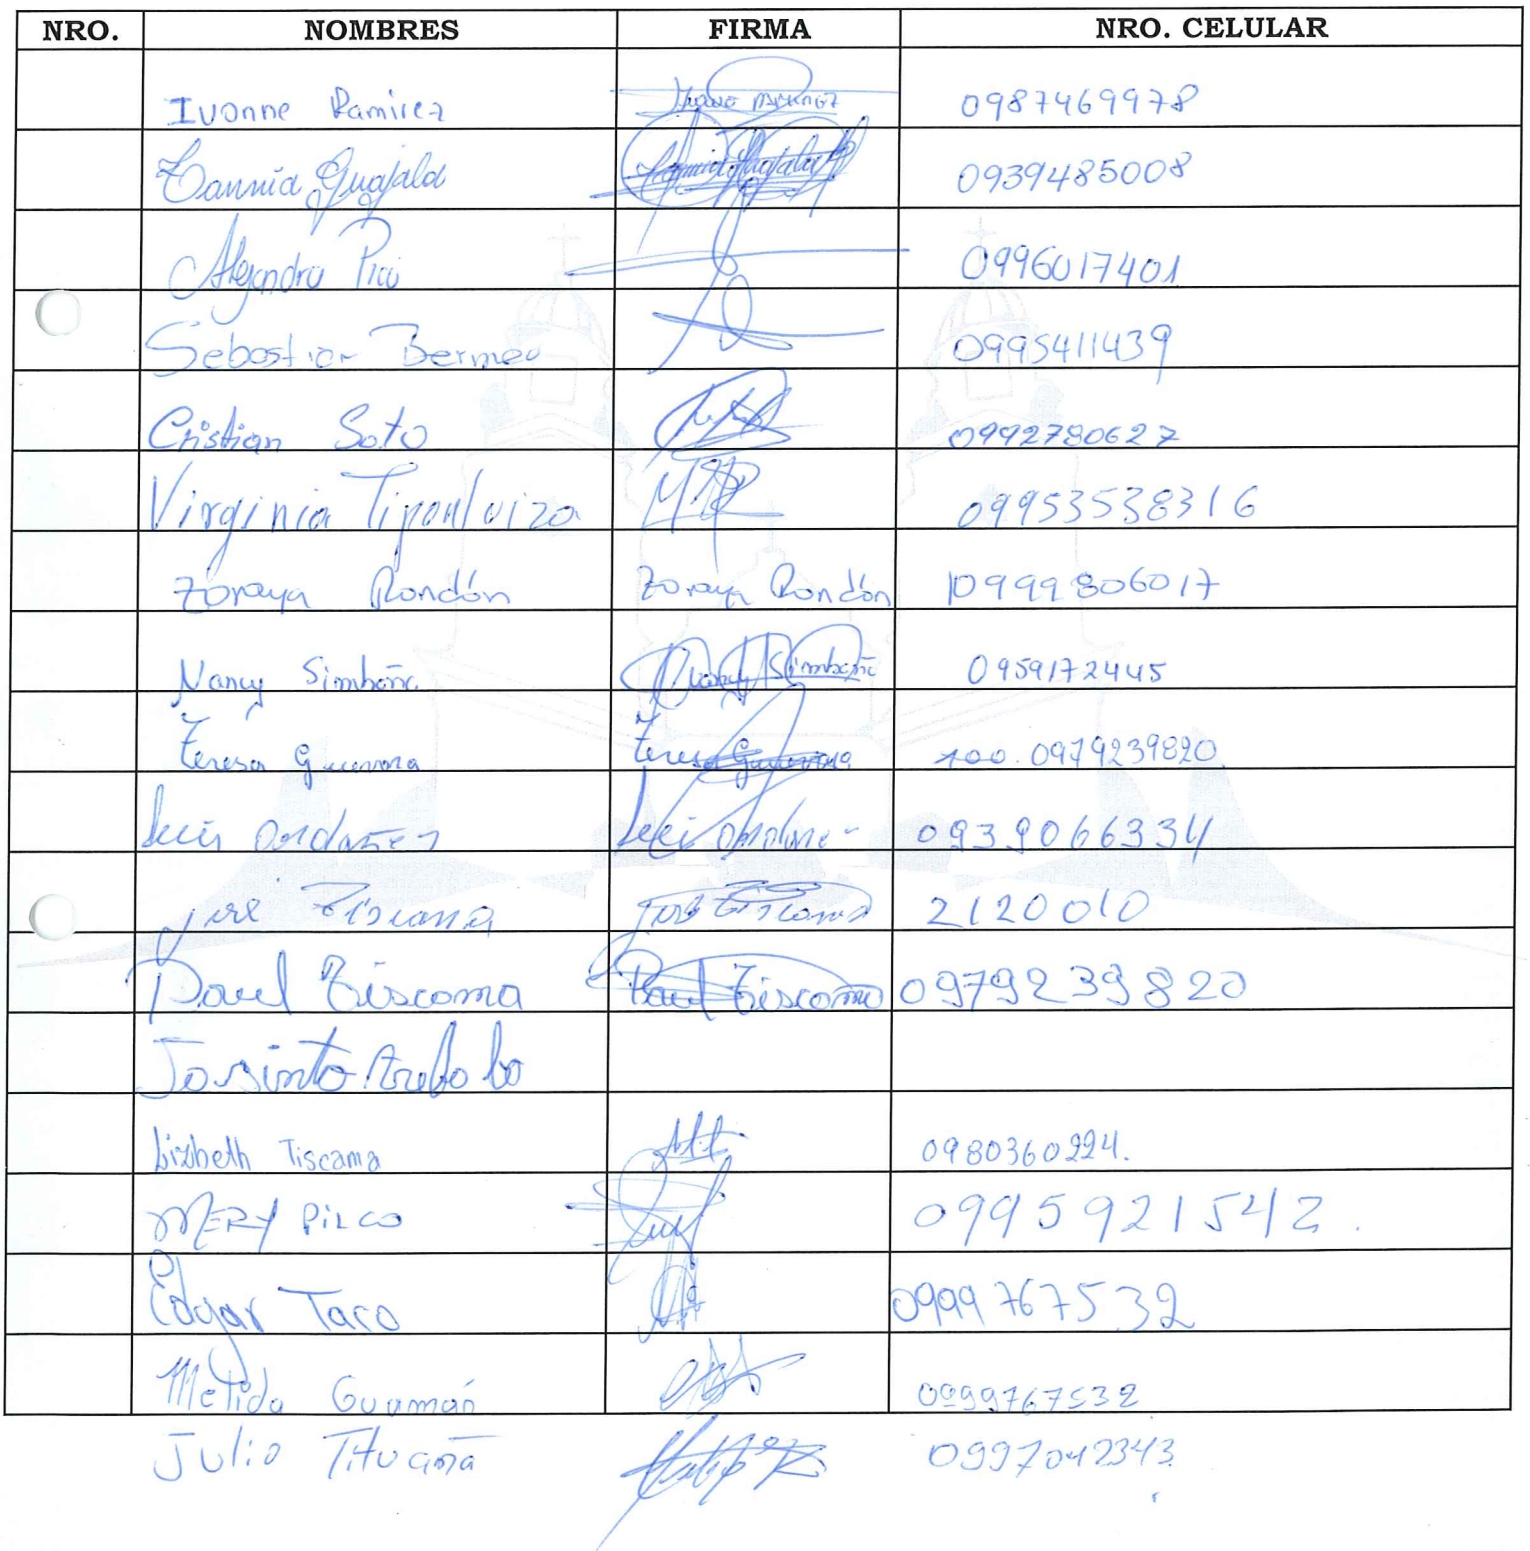 NRO. NOMBRES FIRMA NRO. CELULAR
Ivonne Ramirez Ivonne Ramirez 0987469978
Tannia Guajala Tannia Guajala 0939485008
Alejandro Pico 0996017401
Sebastian Bermeo 0995411439
Cristian Soto 0992780627
Virginia Tipanluiza 09953538316
Zoraya Rondón Zoraya Rondón 0999806017
Nancy Simbaña Nancy Simbaña 0959172445
Teresa Guevara Teresa Guevara 0979239820
Luis Ordañez Luis 0939066334
José Tiscama José Tiscama 2120010
Paul Tiscama Paul Tiscama 0979239820
Jasinto
Lizbeth Tiscama 0980360224.
MERY PILCO 0995921542.
Edgar Taco 0999767532
Melida Guamán 0999767532
Julio Tituaña 0997042343